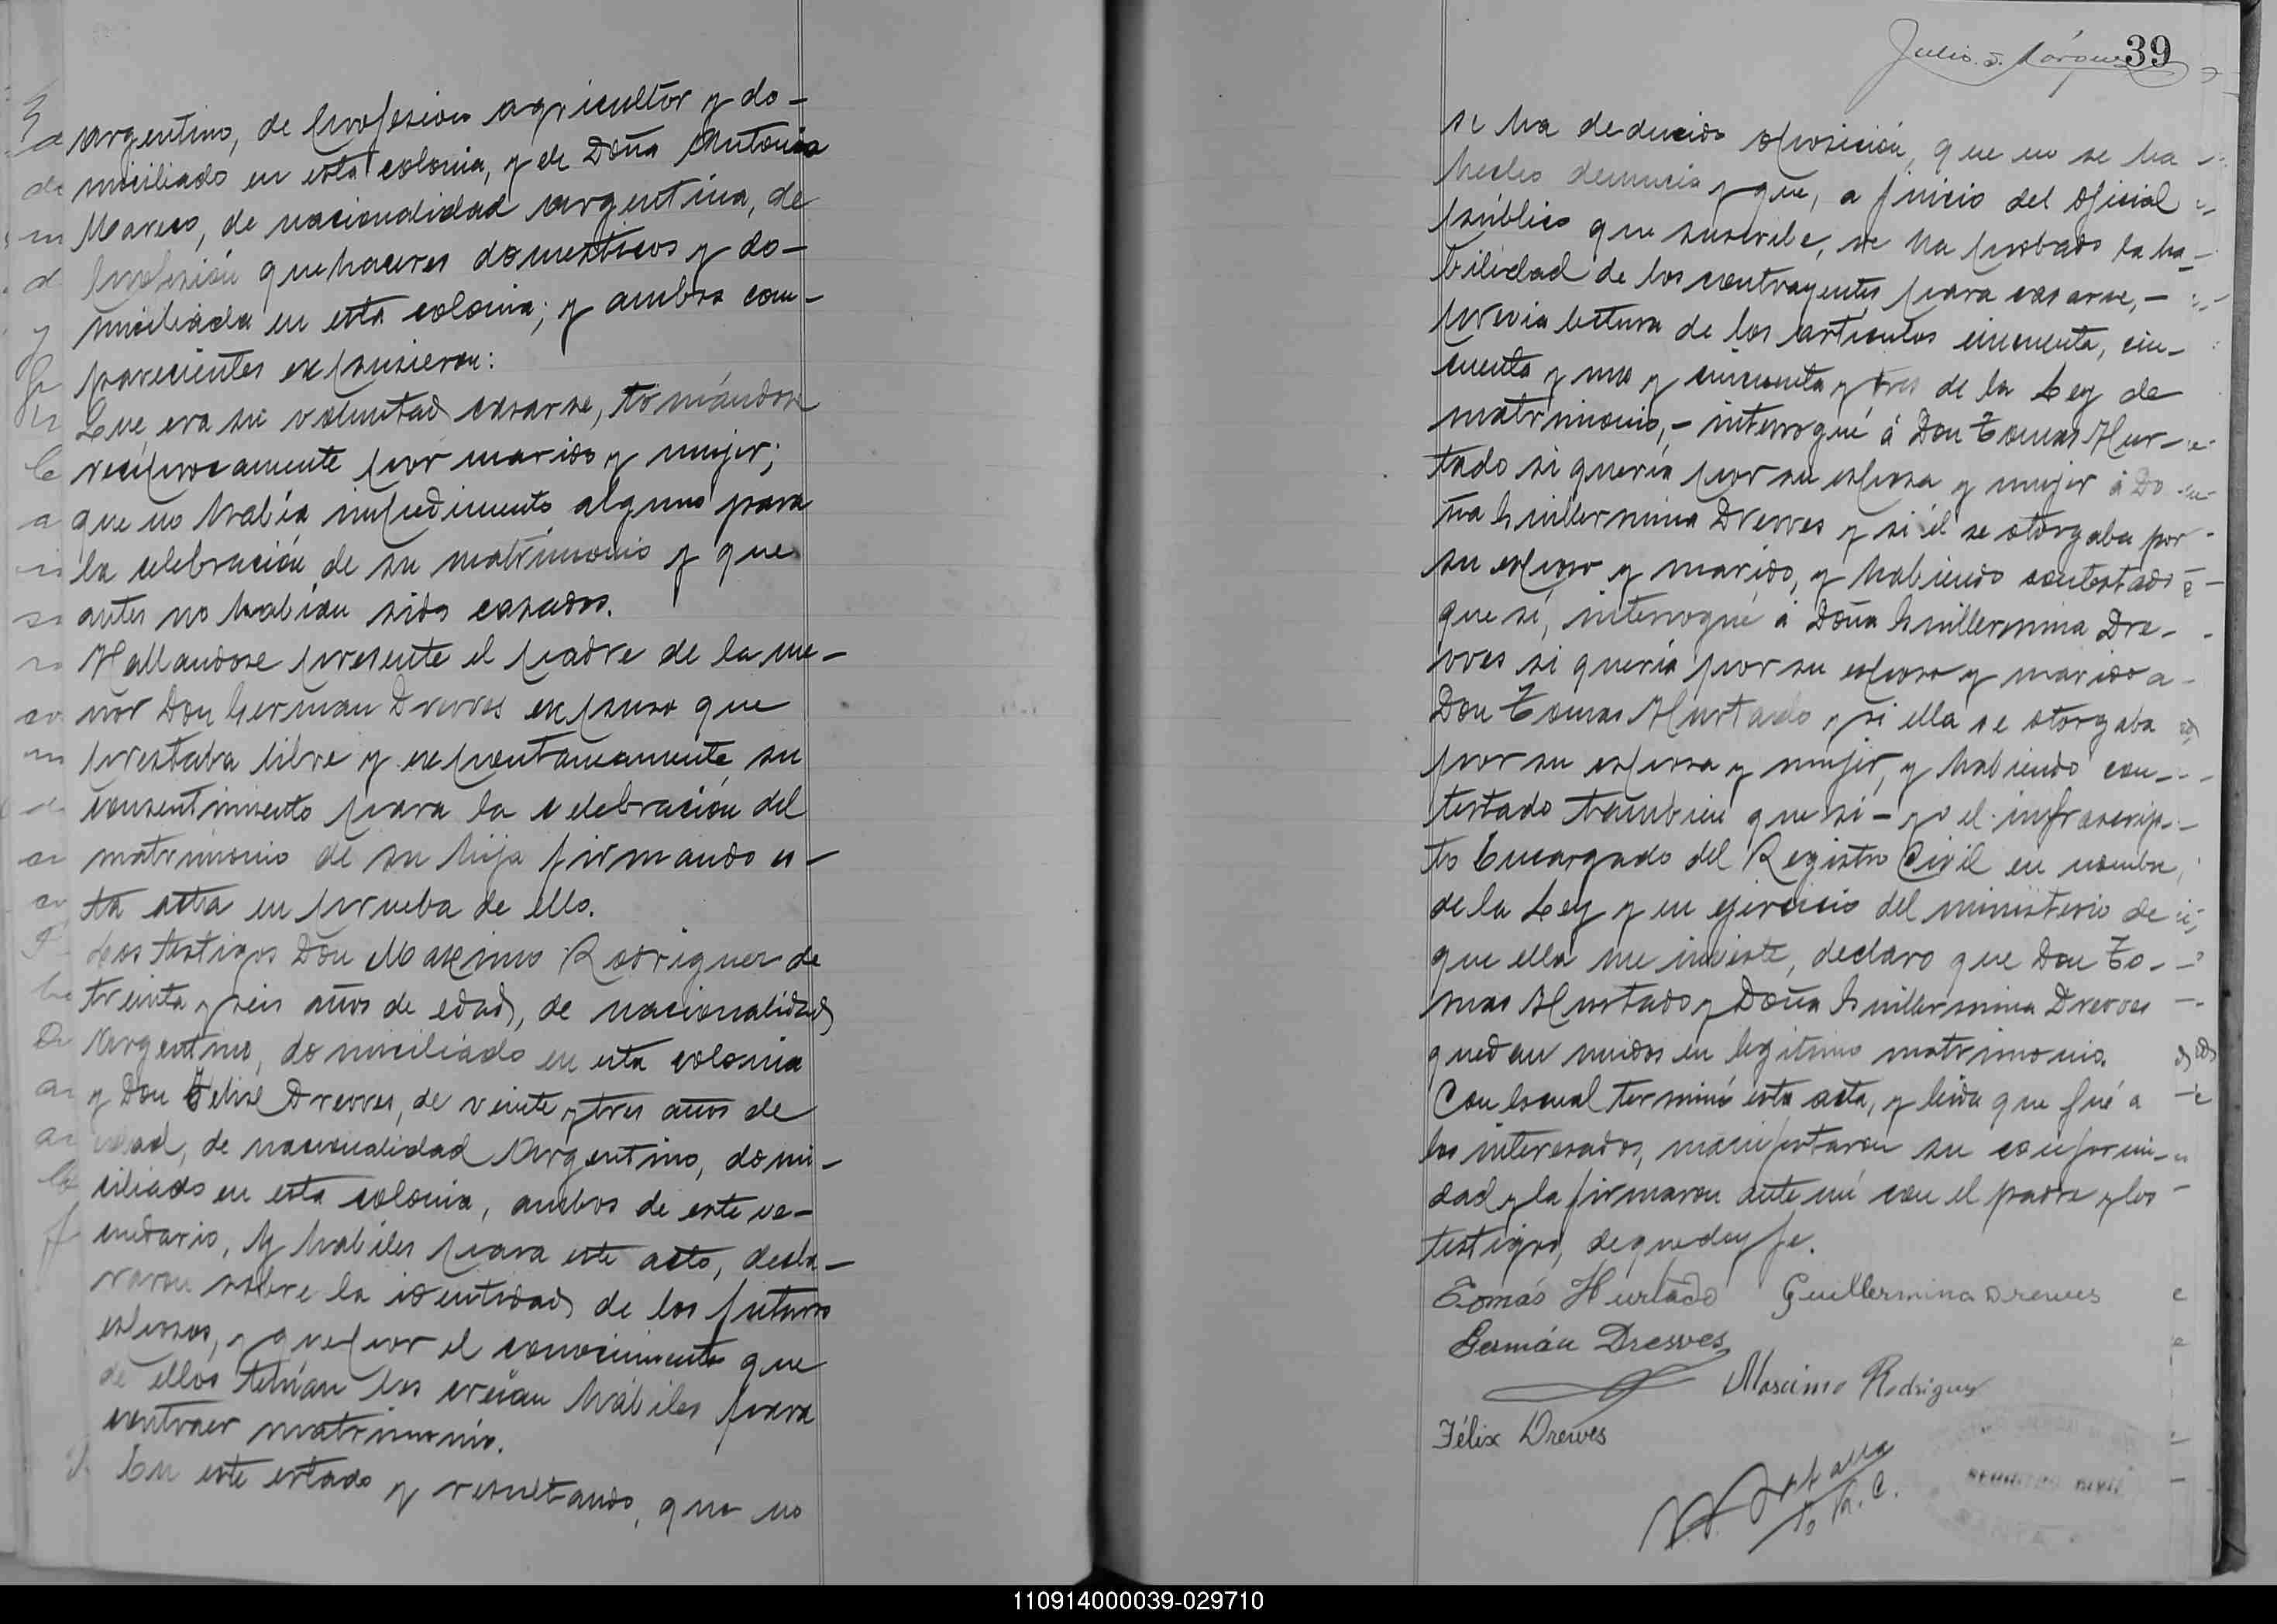 argentino, de profesion agricultor y do-
miciliado en esta colonia, y de Doña Antonia
Mareco, de nacionalidad argentina, de
profesión quehaceres domesticos y do-
miciliada en esta colonia; y ambos com-
parecientes expusieron:
Que era su voluntad casarse, tomándose
reciprocamente por marido y mujer;
que no había impedimento alguno para
la celebración de su matrimonio y que
antes no habian sido casados.
Hallandose presente el padre de la me-
nor Don German Drewes expuso que
prestaba libre y expontaneamente su
consentimiento para la celebración del
matrimonio de su hija firmando es-
ta acta en prueba de ello.
Los testigos Don Maximo Rodriguez de
treinta y seis años de edad, de nacionalidad
Argentino, domiciliado en esta colonia
y Don Felise Drewes, de veinte y tres años de
edad, de nacionalidad Argentino, domi-
ciliado en esta colonia, ambos de este ve-
cindario, y habiles para este acto, decla-
raron sobre la identidad de los futuros
esposos, y que por el conocimiento que
de ellos tenían los creían hábiles para
contraer matrimonio.
En este estado y resultando, que no
Julio S. Márquez
39
se ha deducido oposición, que no se ha
hecho denuncia y que, a juicio del oficial
público que suscribe, se ha probado la ha-
bilidad de los contrayentes para casarse,-
previa lectura de los articulos cincuenta, cin-
cuenta y uno y cincuenta y tres de la Ley de
matrimonio,- interrogué á Don Tomas Hur-
tado si quería por su esposa y mujer á Do
ña Guillermina Drewes y si él se otorgaba por
su esposo y marido, y habiendo contestado
que sí, interrogué á Doña Guillermina Dre-
wes si quería por su esposo y marido a
Don Tomas Hurtado y si ella se otorgaba
por su esposa y mujer, y habiendo con-
testado tambien que si - yo el infrascrip-
to Encargado del Registro Civil en nombre
de la Ley y en ejercicio del ministerio de
que ella me inviste, declaro que Don To-
mas Hurtado y Doña Guillermina Drewes
quedan unidos en legitimo matrimonio.
Con lo cual terminó esta acta, y leida que fué a
los interesados, manifestaron su conformi-
dad y la firmaron ante mí con el padre y los
testigos, de que doy fe.
Tomás Hurtado Guillermina Drewes
Germán Drewes
Maximo Rodriguez
Félix Drewes
REGISTRO CIVIL
110914000039-029710